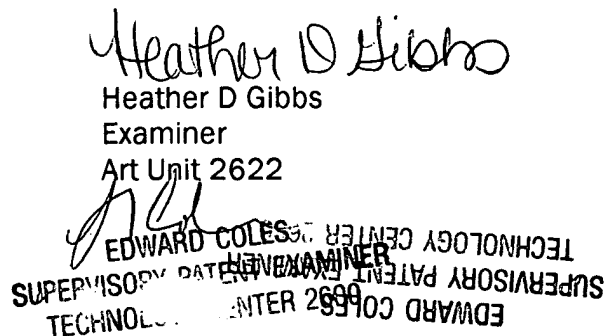 Heather D Gibbs
Heather D Gibbs
Examiner
Art Unit 2622
EDWARD COLES
SUPERVISORY PATENT EXAMINER
TECHNOLOGY CENTER
EDWARD COLES
SUPERVISORY PATENT EXAMINER
TECHNOLOGY CENTER 2600